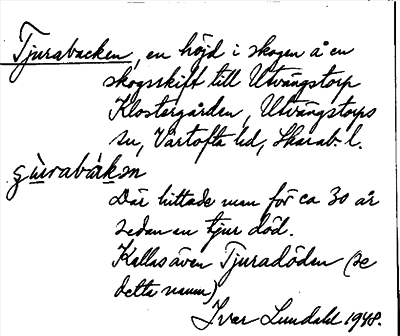 Tjurabacken, en höjd i skogen å en
skogsskift till Utvängstorp
Klostergården, Utvängstorps
sn, Vartofta hd, Skarab. l.
çùrabákən
Där hittade man för ca 30 år
sedan en tjur död.
Kallas även Tjuradöden (se
detta namn)
Ivar Lundahl 1948.